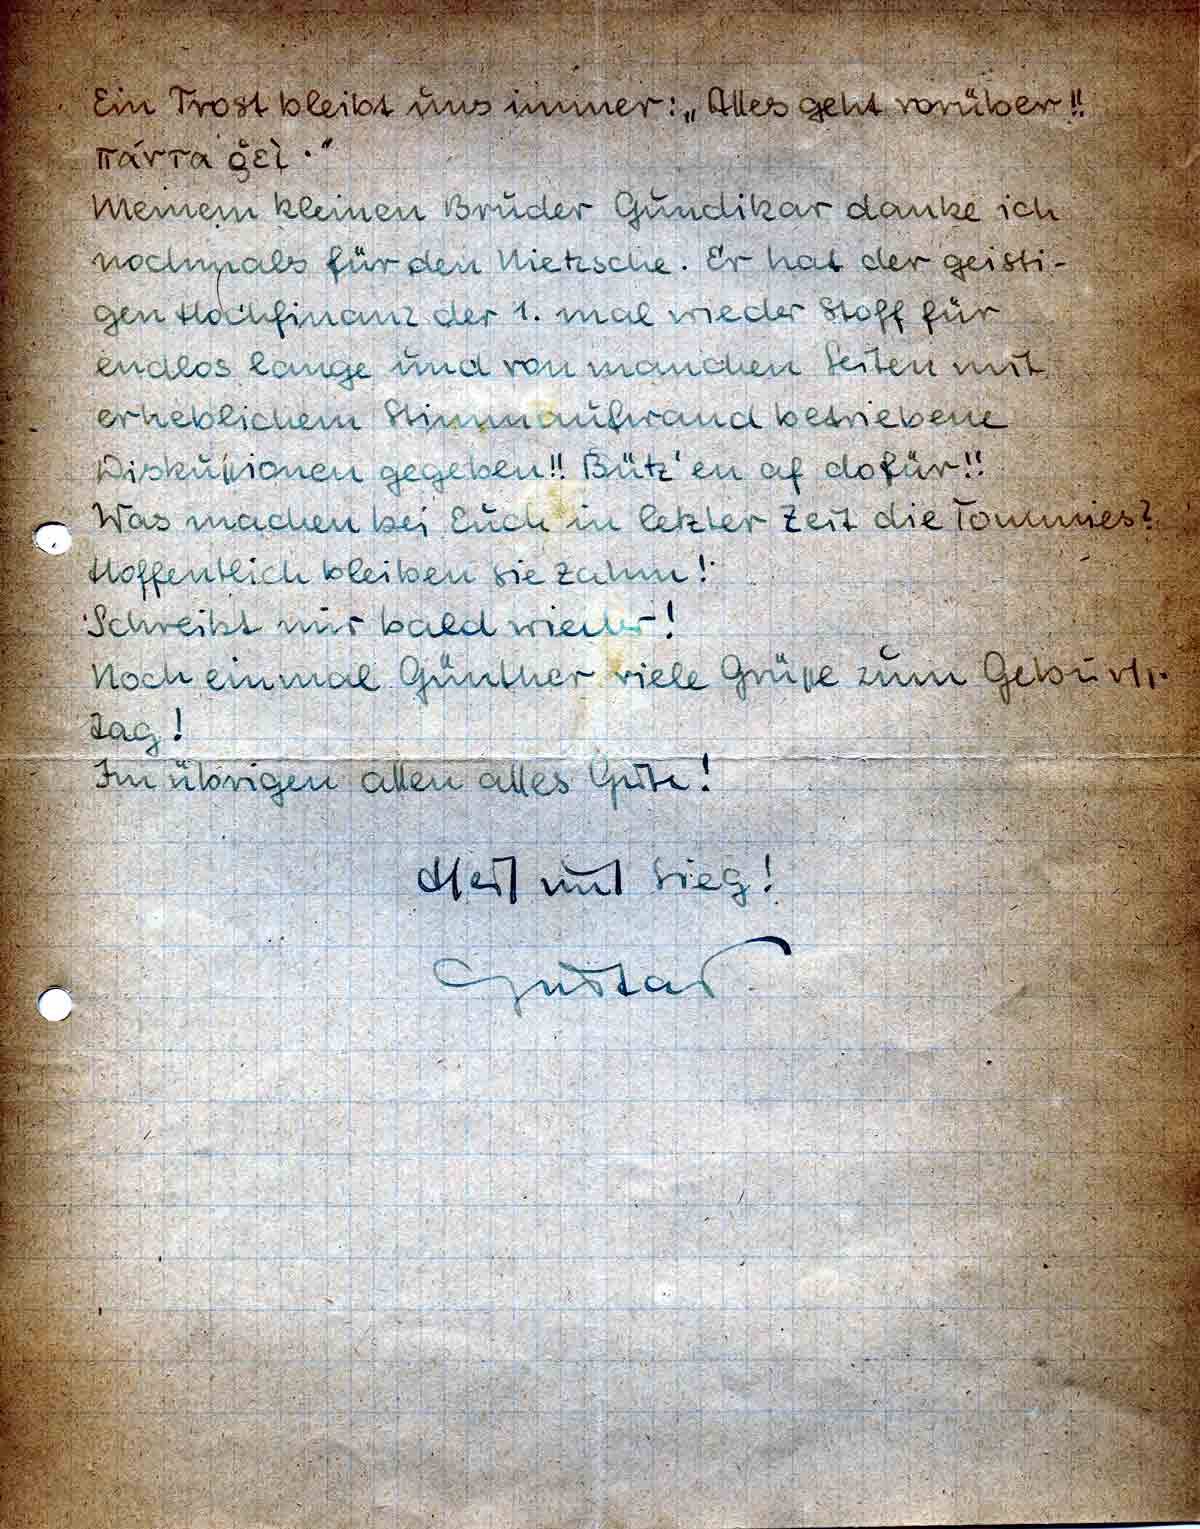 Ein Trost bleibt uns immer: „Alles geht vorüber!!
πάντα ῥεῖ ."
Meinem kleinen Bruder Gundikar danke ich
nochmals für den Nietzsche. Er hat der geisti-
gen Hochfinanz der 1. mal wieder Stoff für
endlos lange und von manchen Seiten mit
erheblichem Stimmaufwand betriebene
Diskussionen gegeben!! Bütz'en af dofür!!
Was machen bei Euch in letzter Zeit die Tommies?
Hoffentlich bleiben sie zahm!
Schreibt mir bald wieder!
Noch einmal Günther viele Grüße zum Geburts-
tag!
Im übrigen allen alles Gute!
Heil und Sieg!
Gustav